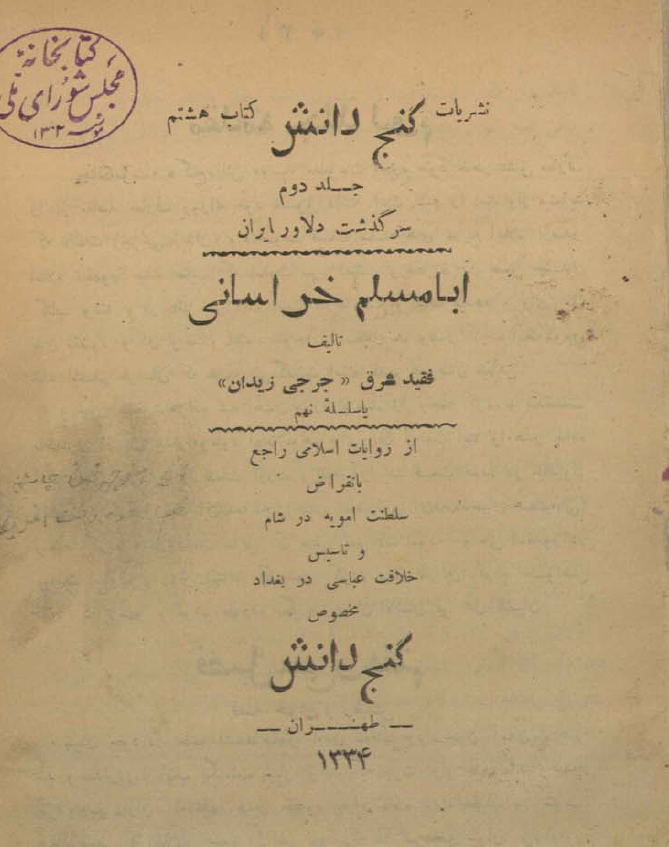 کتابخانهٔ
مجلس شورای ملی
۱۳۰۲
نشریات گنج دانش کتاب هشتم
جلد دوم
سرگذشت دلاور ایران
ابامسلم خراسانی
تالیف
فقید شرق «جرجی زیدان»
یاسلسلهٔ نهم
از روایات اسلامی راجع
بانقراض
سلطنت امویه در شام
و تاسیس
خلافت عباسی در بغداد
مخصوص
گنج دانش
— طهران —
۱۳۳۴